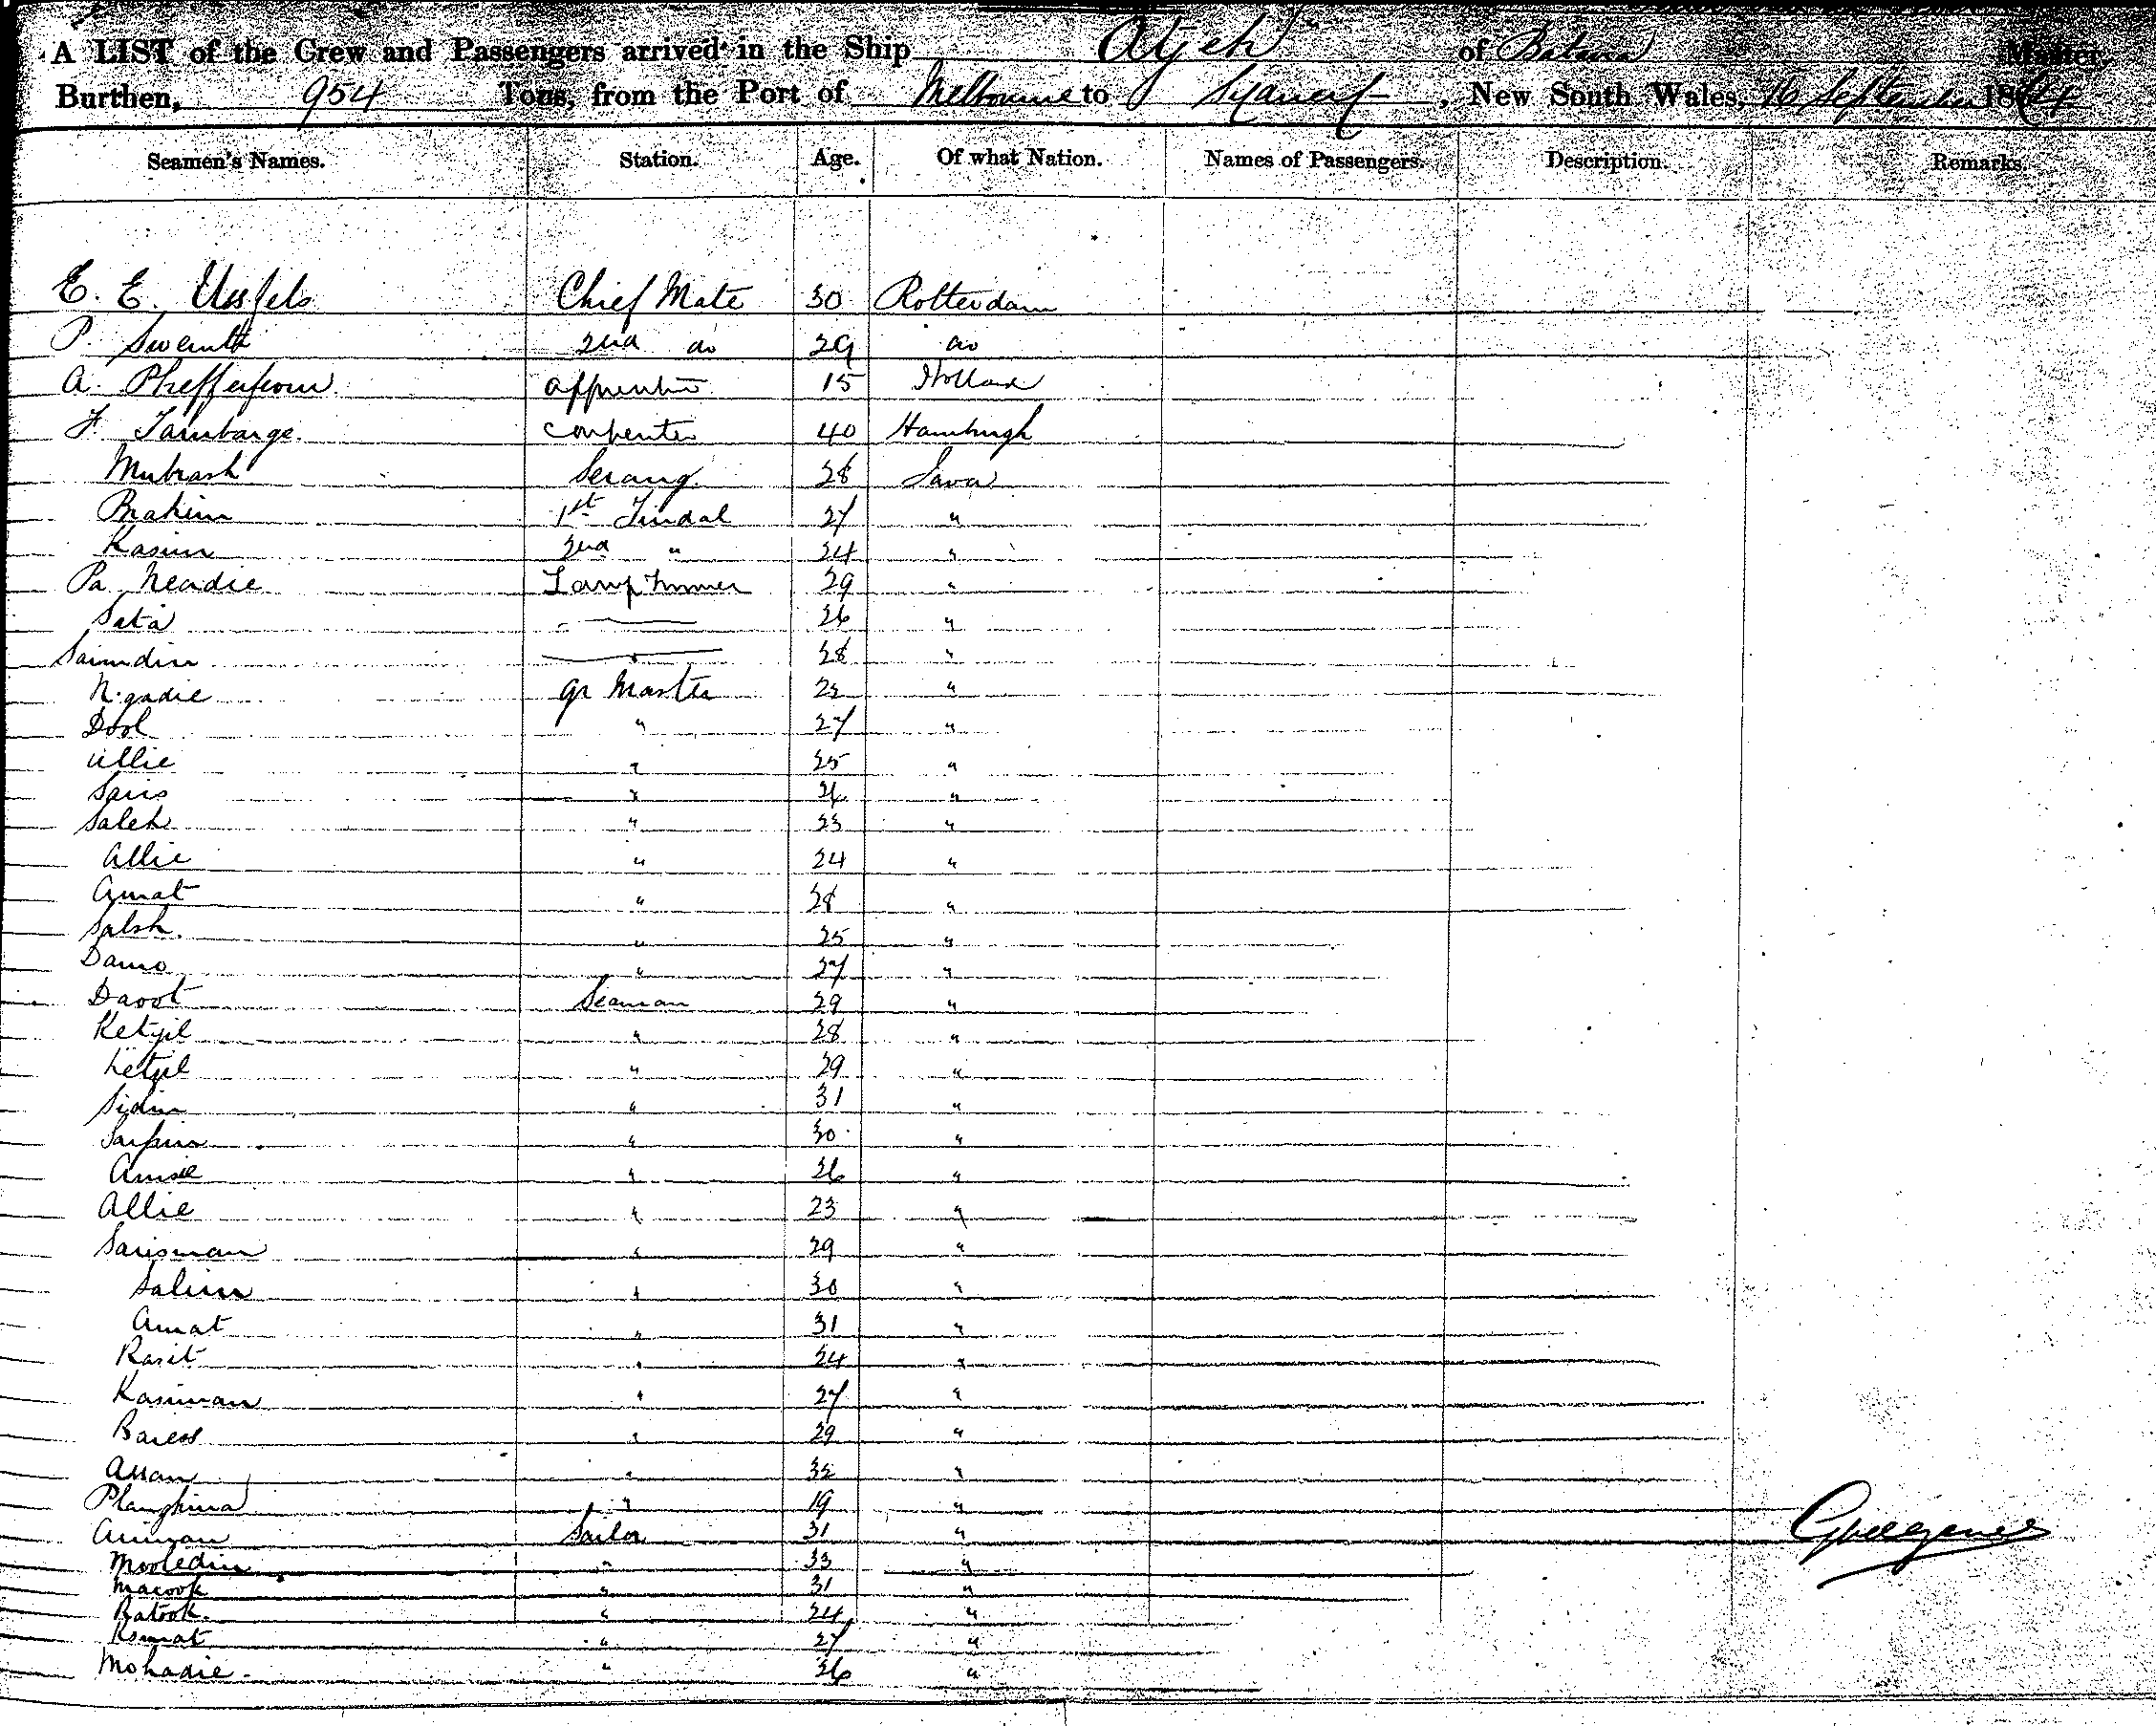 A LIST of the Crew and Passengers arrived in the Ship Atjeh of Batavia Master,
Burthen, 954 Tons, from the Port of Melbourne to Sydney, New South Wales, 16 September 18
Seamen's Names. Station. Age. Of what Nation. Names of Passengers. Description. Remarks.
E. E. Chief Mate 30 Rotterdam
P. 2nd do 29 do
A. apprentice 15 Holland
F. Tambarge carpenter 40 Hamburgh
Mubrash Serang 28 Java
Brahim 1st Tindal 27 "
Kasim 2nd " 24 "
Pa Neadie Lamp Trimmer 29 "
Sata — 26 "
Saimdin — 28 "
N.gadie Qr Master 22 "
Dool " 27 "
Ullie " 25 "
Saris " "
Saleh " 23 "
Allie " 24 "
Amat " 28 "
Salsh " 25 "
Damo " 27 "
Davot Seaman 29 "
Ketjil " 28 "
Ketjil " 29 "
Sidin " 31 "
" 30 "
Amsie " 26 "
Allie " 23 "
Sarisman " 29 "
Salim " 30 "
Amat " 31 "
Rasit " 24 "
Kasiman " 27 "
" 29 "
" 32 "
" 19 "
Animan Sailor 31 "
Mooledin " 33 "
Macook " 31 "
Ratook " 24 "
Ksmat " 27 "
Mohadie " 26 "